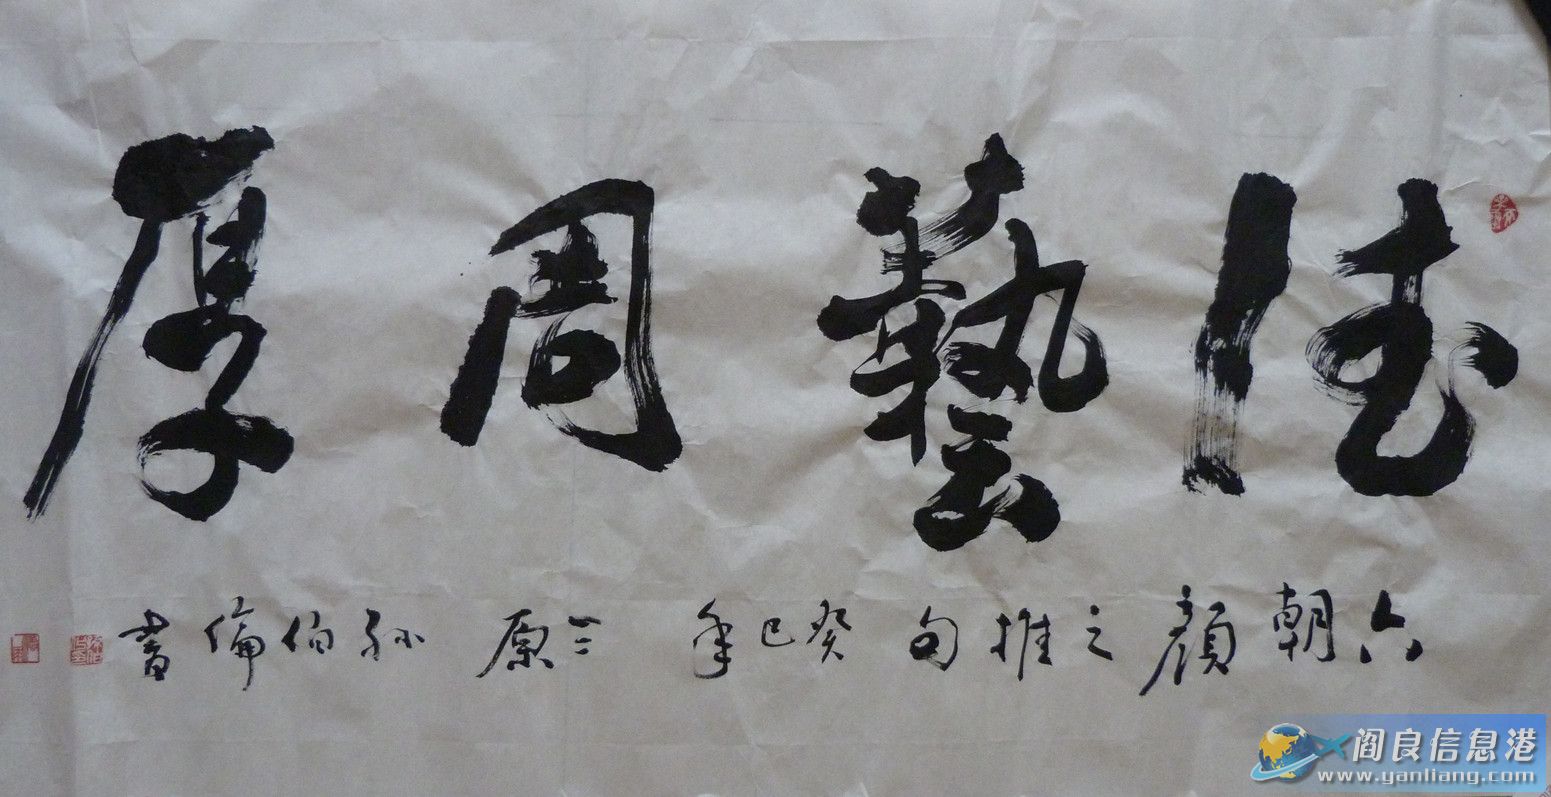 德藝周厚
六朝顔之推句癸巳年三原孫伯倫書
阎良信息港
www.yanliang.com